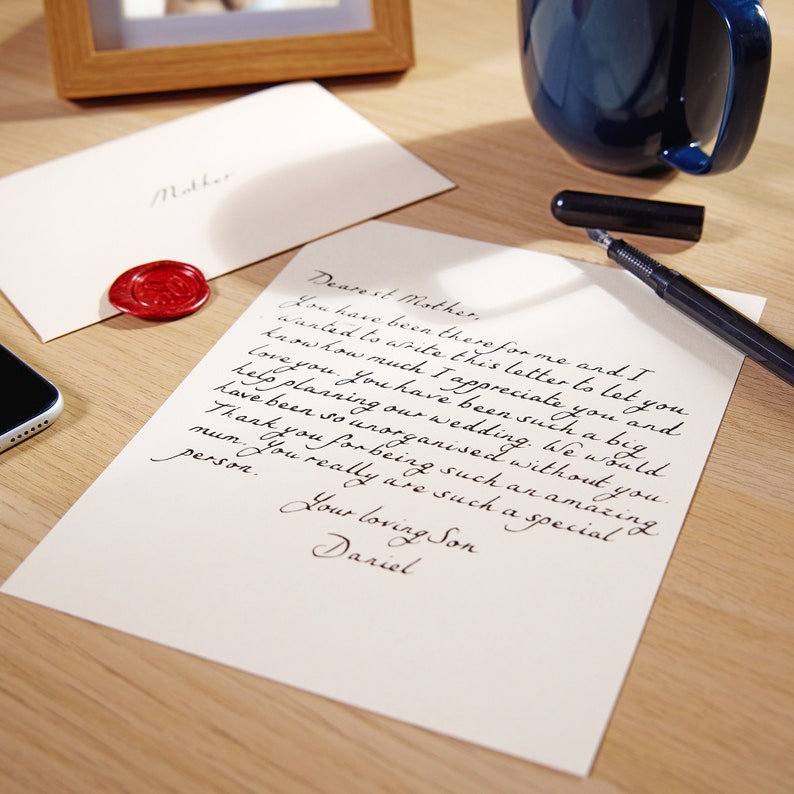 Mother
Dearest Mother,
You have been there for me and I
wanted to write this letter to let you
know how much I appreciate you and
love you. You have been such a big
help planning our wedding. We would
have been so unorganised without you.
Thank you for being such an amazing
mum. You really are such a special
person.
Your loving Son
Daniel